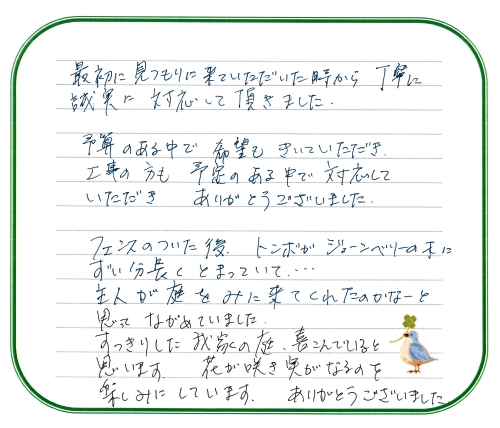 最初に見つもりに来ていただいた時から丁寧に
誠実に対応して頂きました.
予算のある中で希望もきいていただき.
工事の方も予定のある中で対応して
いただきありがとうございました.
フェンスのついた後. トンボがジューンベリーの木に
ずい分長くとまっていて....
主人が庭をみに来てくれたのかなーと
思ってながめていました.
すっきりした我家の庭. 喜こんでいると
思います. 花が咲き実がなるのを
楽しみにしています. ありがとうございました